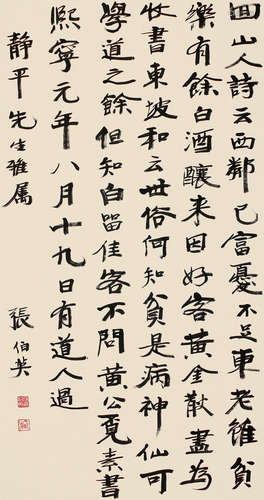 回山人詩云西鄰已富憂不足東老雖貧
樂有餘白酒釀來因好客黃金散盡為
收書東坡和云世俗何知貧是病神仙可
學道之餘但知白留佳客不問黃公覓素書
熙寧元年八月十九日有道人過
靜平先生雅屬
張伯英